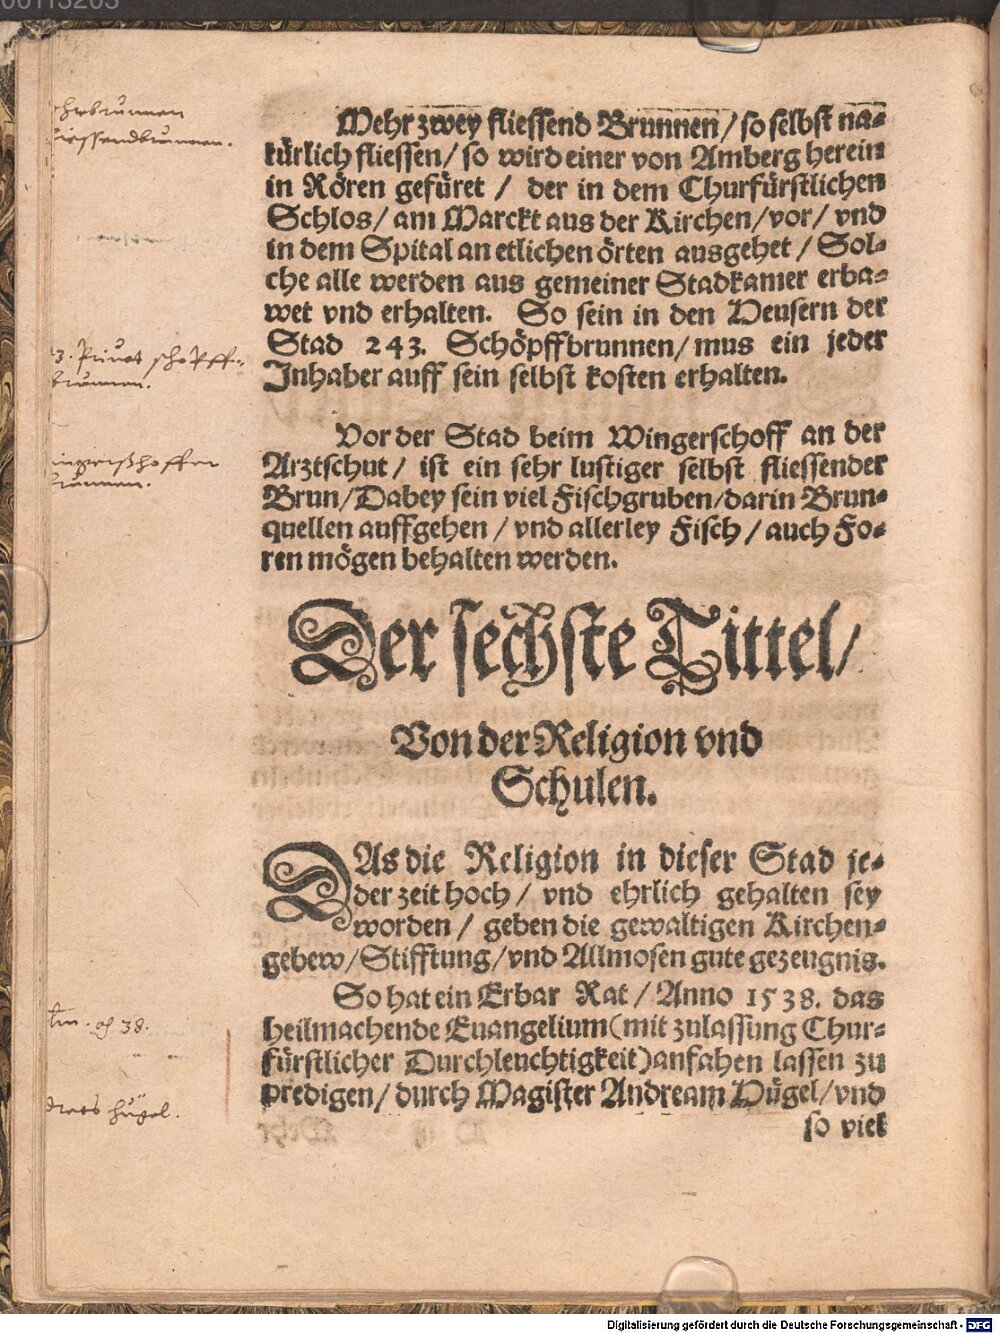 Mehr zwey fliessend Brunnen / so selbst na-
türlich fliessen / so wird einer von Amberg herein
in Rören gefüret / der in dem Churfürstlichen
Schlos / am Marckt aus der Kirchen / vor / vnd
in dem Spital an etlichen örten ausgehet / Sol-
che alle werden aus gemeiner Stadkamer erba-
wet vnd erhalten. So sein in den Heusern der
Stad 243. Schöpffbrunnen / mus ein jeder
Inhaber auff sein selbst kosten erhalten.
Vor der Stad beim Wingerschoff an der
Arztschut / ist ein sehr lustiger selbst fliessender
Brun / Dabey sein viel Fischgruben / darin Brun-
quellen auffgehen / vnd allerley Fisch / auch Fo-
ren mögen behalten werden.
Der sechste Tittel /
Von der Religion vnd
Schulen.
DAs die Religion in dieser Stad je-
der zeit hoch / vnd ehrlich gehalten sey
worden / geben die gewaltigen Kirchen-
gebew / Stifftung / vnd Allmosen gute gezeugnis.
So hat ein Erbar Rat / Anno 1538. das
heilmachende Euangelium (mit zulassung Chur-
fürstlicher Durchleuchtigkeit) anfahen lassen zu
predigen / durch Magister Andream Hügel / vnd
so viel
brunnen.
38.
hügel.
Digitalisierung gefördert durch die Deutsche Forschungsgemeinschaft - DFG